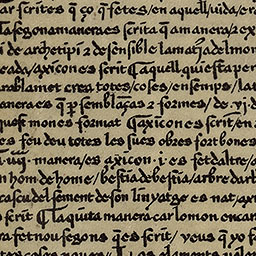 ar scrites q̃ ço q̃ fetes / en aquell / uida / er
la segona manera es scrita q̃ am manera / 2 ex
i de archetipi 2 de sensible la mat̃ia del mon
eada / axicon es scrit Caquell qui esta per
arablamet crea totes / coses / en semps / lat
anera es q̃ p semblãças 2 formes / de .vj. d
quest mon es format Caxicon es scrit / en
es feu deu totes les sues obres fort bones
.iiij. manera / es axicon .i. es fet daltre / a
n hom de home / bestia de bestia / arbre darb
cascu del sement de son linyatge es nat / ax
o scrit Cla quinta manera car lo mon encar
ra fet nou segons q̃ es scrit / veus q̃ yo f